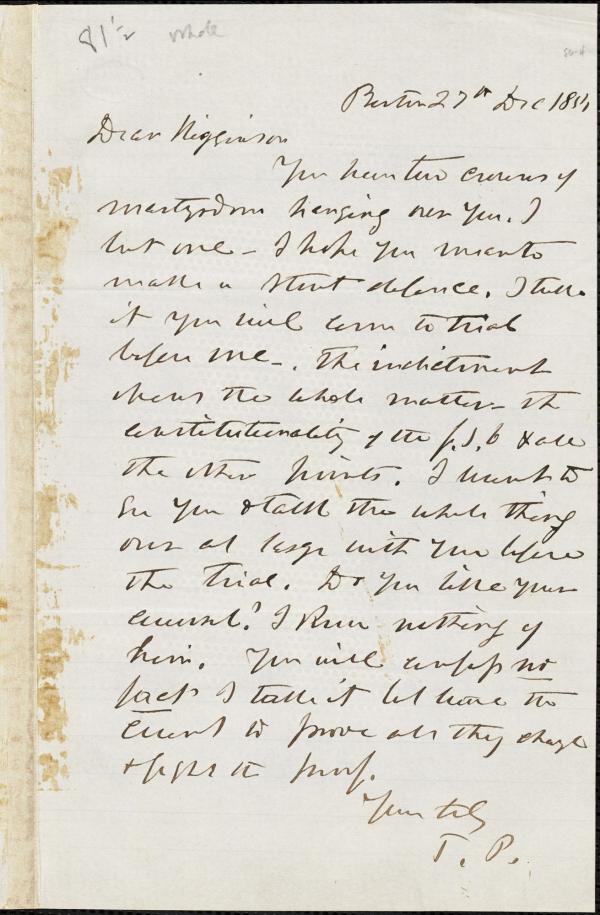 81 1/2 whole
Boston 27th Dec 1854
Dear Higginson
You have two crowns of
martyrdom hanging over you. I
but one - I hope you mean to
make a stout defence. I take
it you will come to trial
before me -. The indictment
opens the whole matter - the
constitutionality of the f. s. b & all
the other points. I want to
see you & talk the whole thing
over at large with you before
the trial. Do you like your
counsel? I know nothing of
him. You will confess no
fact I take it but leave the
to prove all they charge
& fight the proof.
Yours tly
T. P.